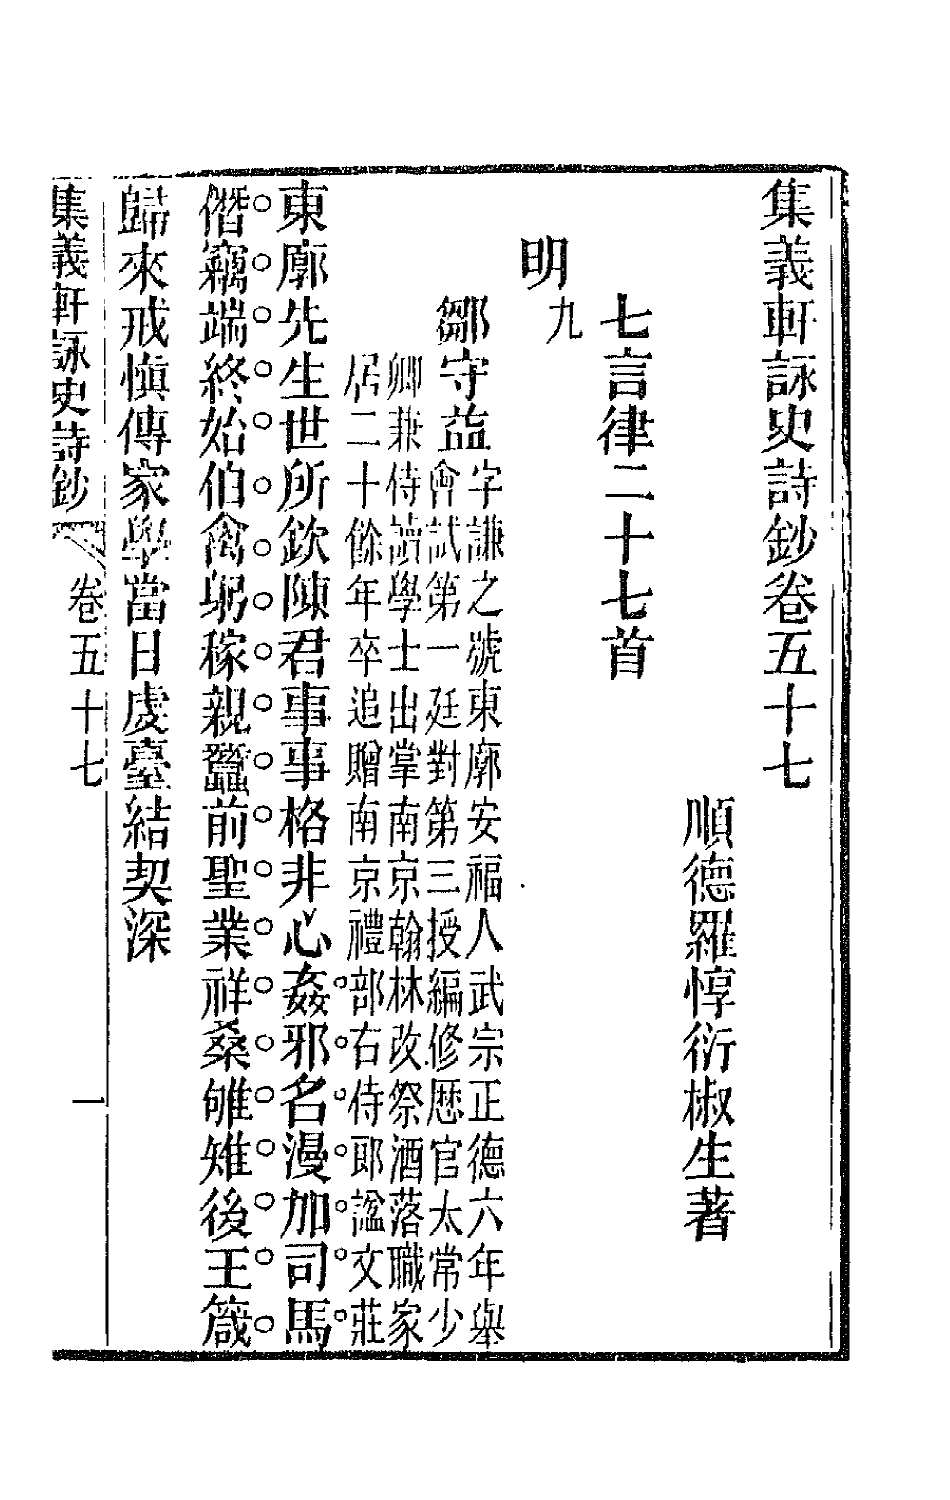 集義軒詠史詩鈔卷五十七
順德羅惇衍椒生著
七言律二十七首
明九
鄒守益字謙之號東廓安福人武宗正德六年舉
會試第一廷對第三授編修歷官太常少
卿兼侍讀學士出掌南京翰林改祭酒落職家
居二十餘年卒追贈南京禮部右侍郎諡文莊
東廓先生世所欽陳君事事格非心姦邪名漫加司馬
僭竊端終始伯禽躬稼親蠶前聖業祥桑雊雉後王箴
歸來戒愼傳家學當日虔臺結契深
集義軒詠史詩鈔 卷五十七 一